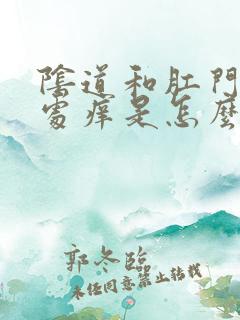 陰道和肛門
處癢是怎麼
郭冬臨
未任同意禁止转载